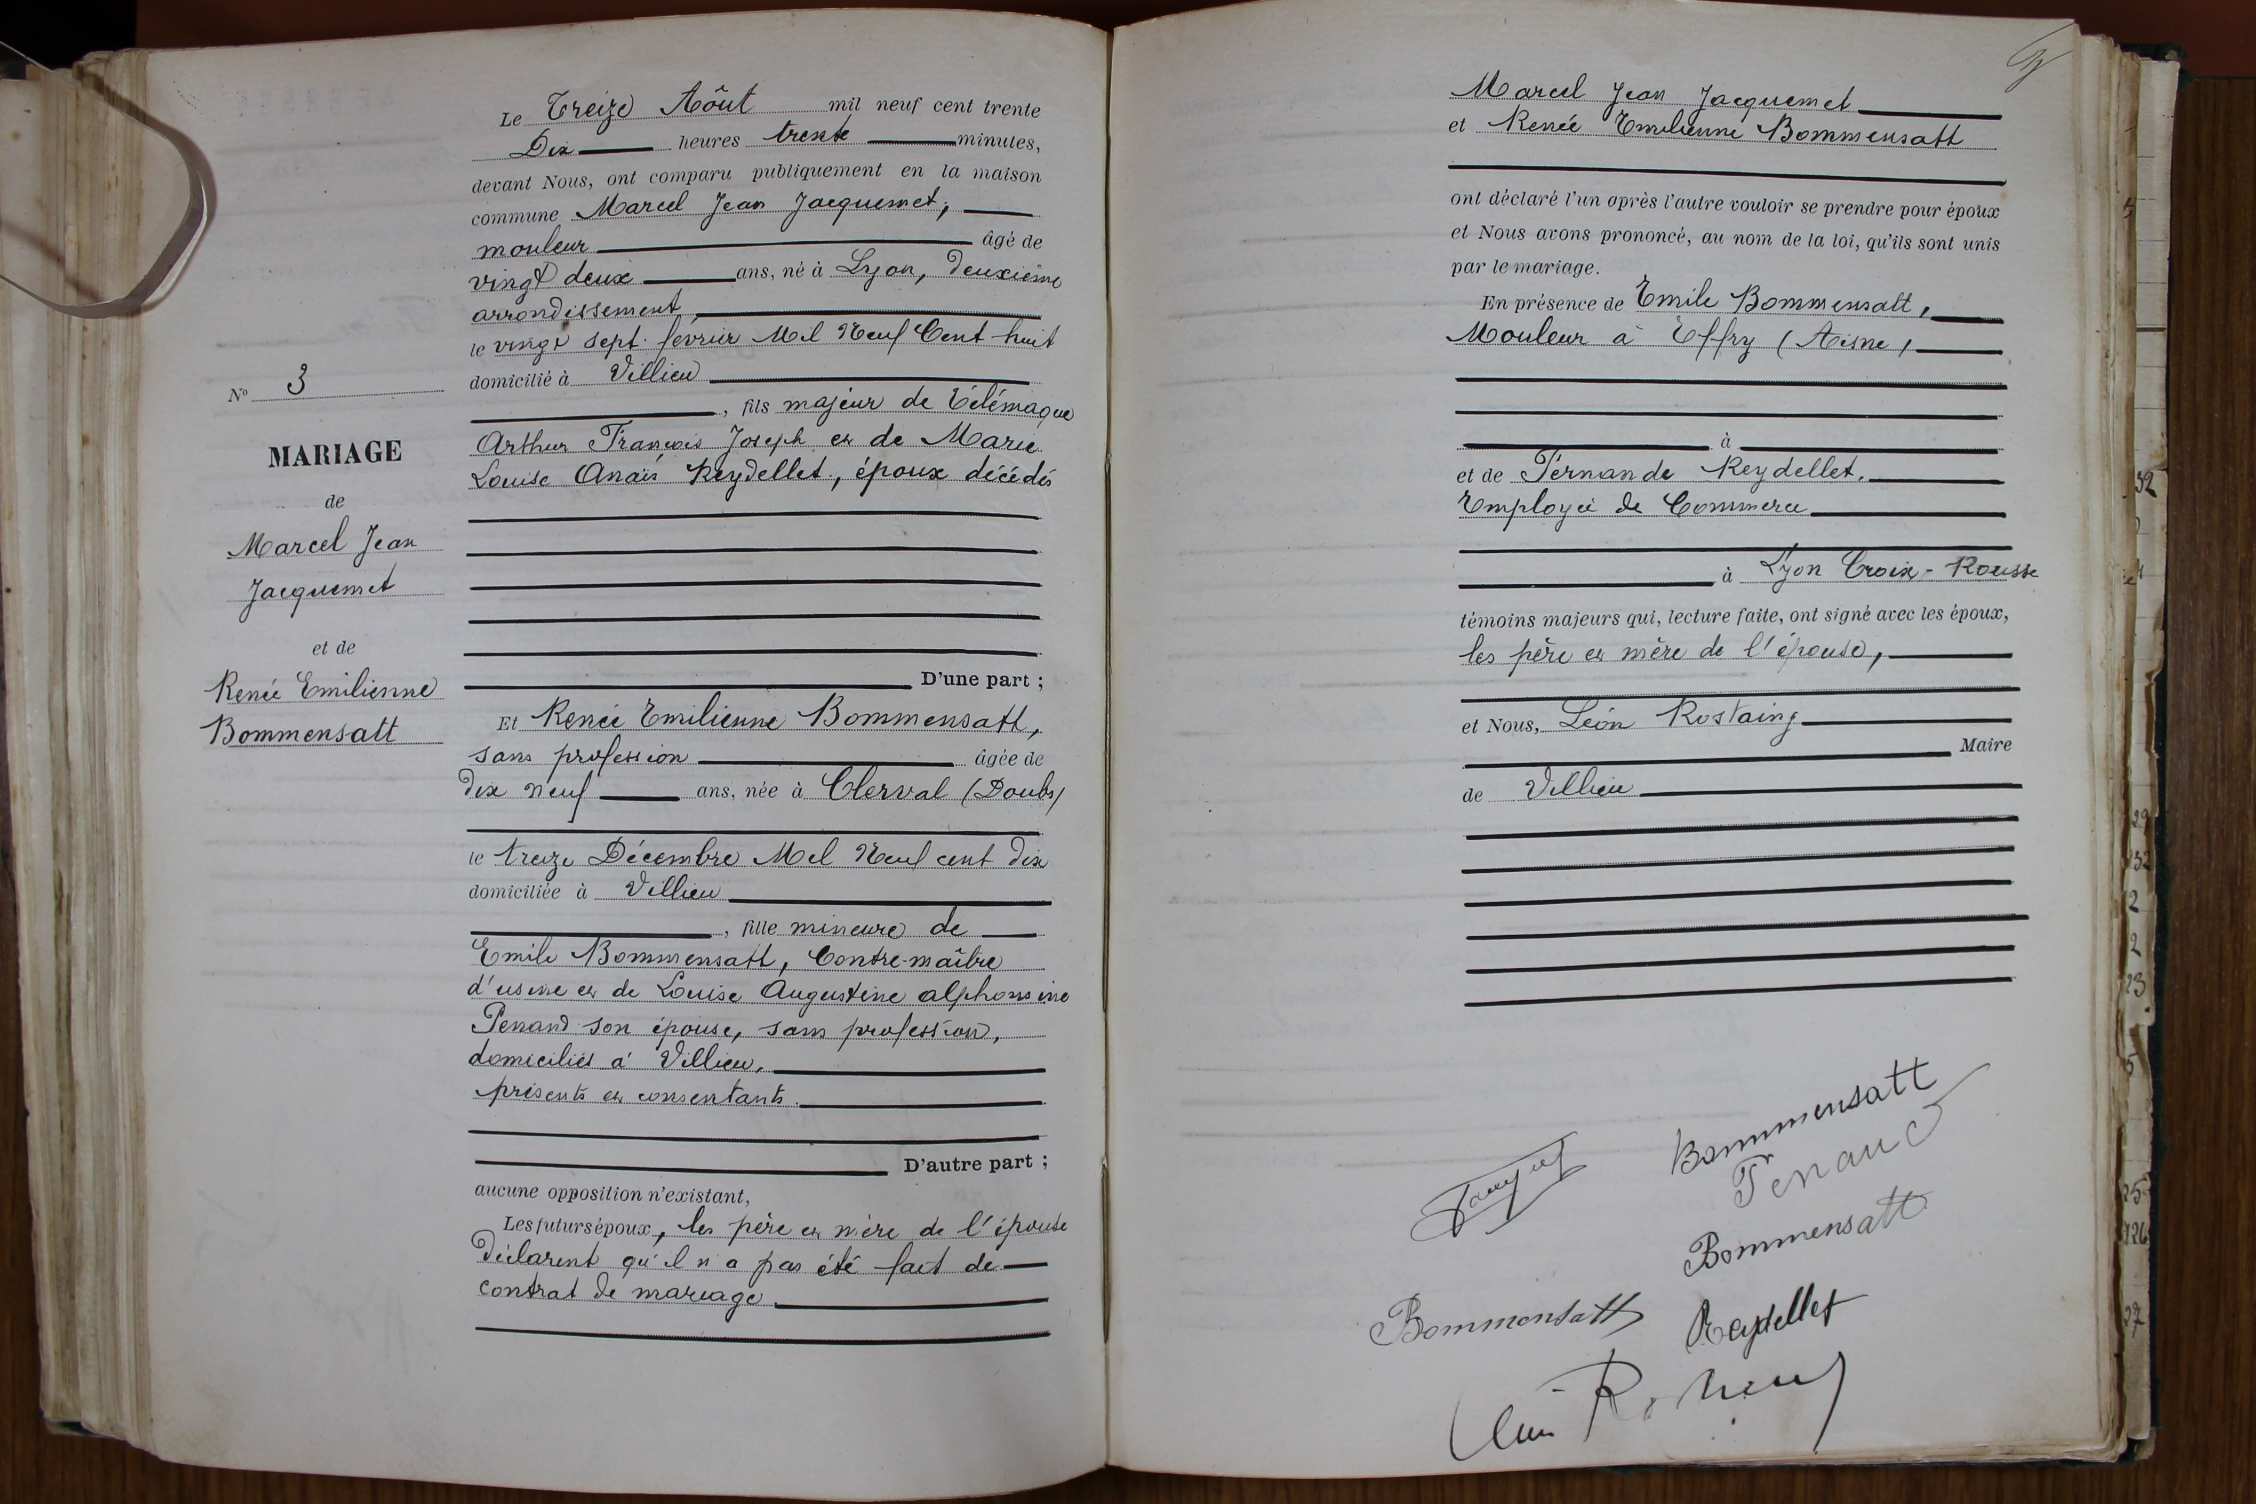 Le Treize Août mil neuf cent trente
Dix heures trente minutes,
devant Nous, ont comparu publiquement en la maison
commune Marcel Jean Jacquemet,
mouleur âgé de
vingt deux ans, né à Lyon, deuxième
arrondissement,
le vingt sept février Mil Neuf Cent huit
domicilié à Villieu
, fils majeur de Télémaque
Arthur François Joseph et de Marie
Louise Anaïs Reydellet, époux décédés
Nº 3
MARIAGE
de
Marcel Jean
Jacquemet
et de
Renée Emilienne
Bommensatt
D'une part ;
Et Renée Emilienne Bommensatt,
sans profession âgée de
dix neuf ans, née à Clerval (Doubs)
le treize Décembre Mil Neuf cent dix
domiciliée à Villieu
, fille mineure de
Emile Bommensatt, Contre-maître
d'usine et de Louise Augustine alphonsine
Penand son épouse, sans profession,
domiciliés à Villieu,
présents et consentants.
D'autre part ;
aucune opposition n'existant,
Les futurs époux, les père et mère de l'épouse
déclarent qu'il n'a pas été fait de
contrat de mariage
Marcel Jean Jacquemet
et Renée Emilienne Bommensatt
ont déclaré l'un après l'autre vouloir se prendre pour époux
et Nous avons prononcé, au nom de la loi, qu'ils sont unis
par le mariage.
En présence de Emile Bommensatt,
Mouleur à Effry (Aisne)
à
et de Fernande Reydellet.
Employée de Commerce
à Lyon Croix-Rousse
témoins majeurs qui, lecture faite, ont signé avec les époux,
les père et mère de l'épouse,
et Nous, Léon Rostaing
Maire
de Villieu
Bommensatt
Penand
Bommensatt
Bommensatt
Reydellet